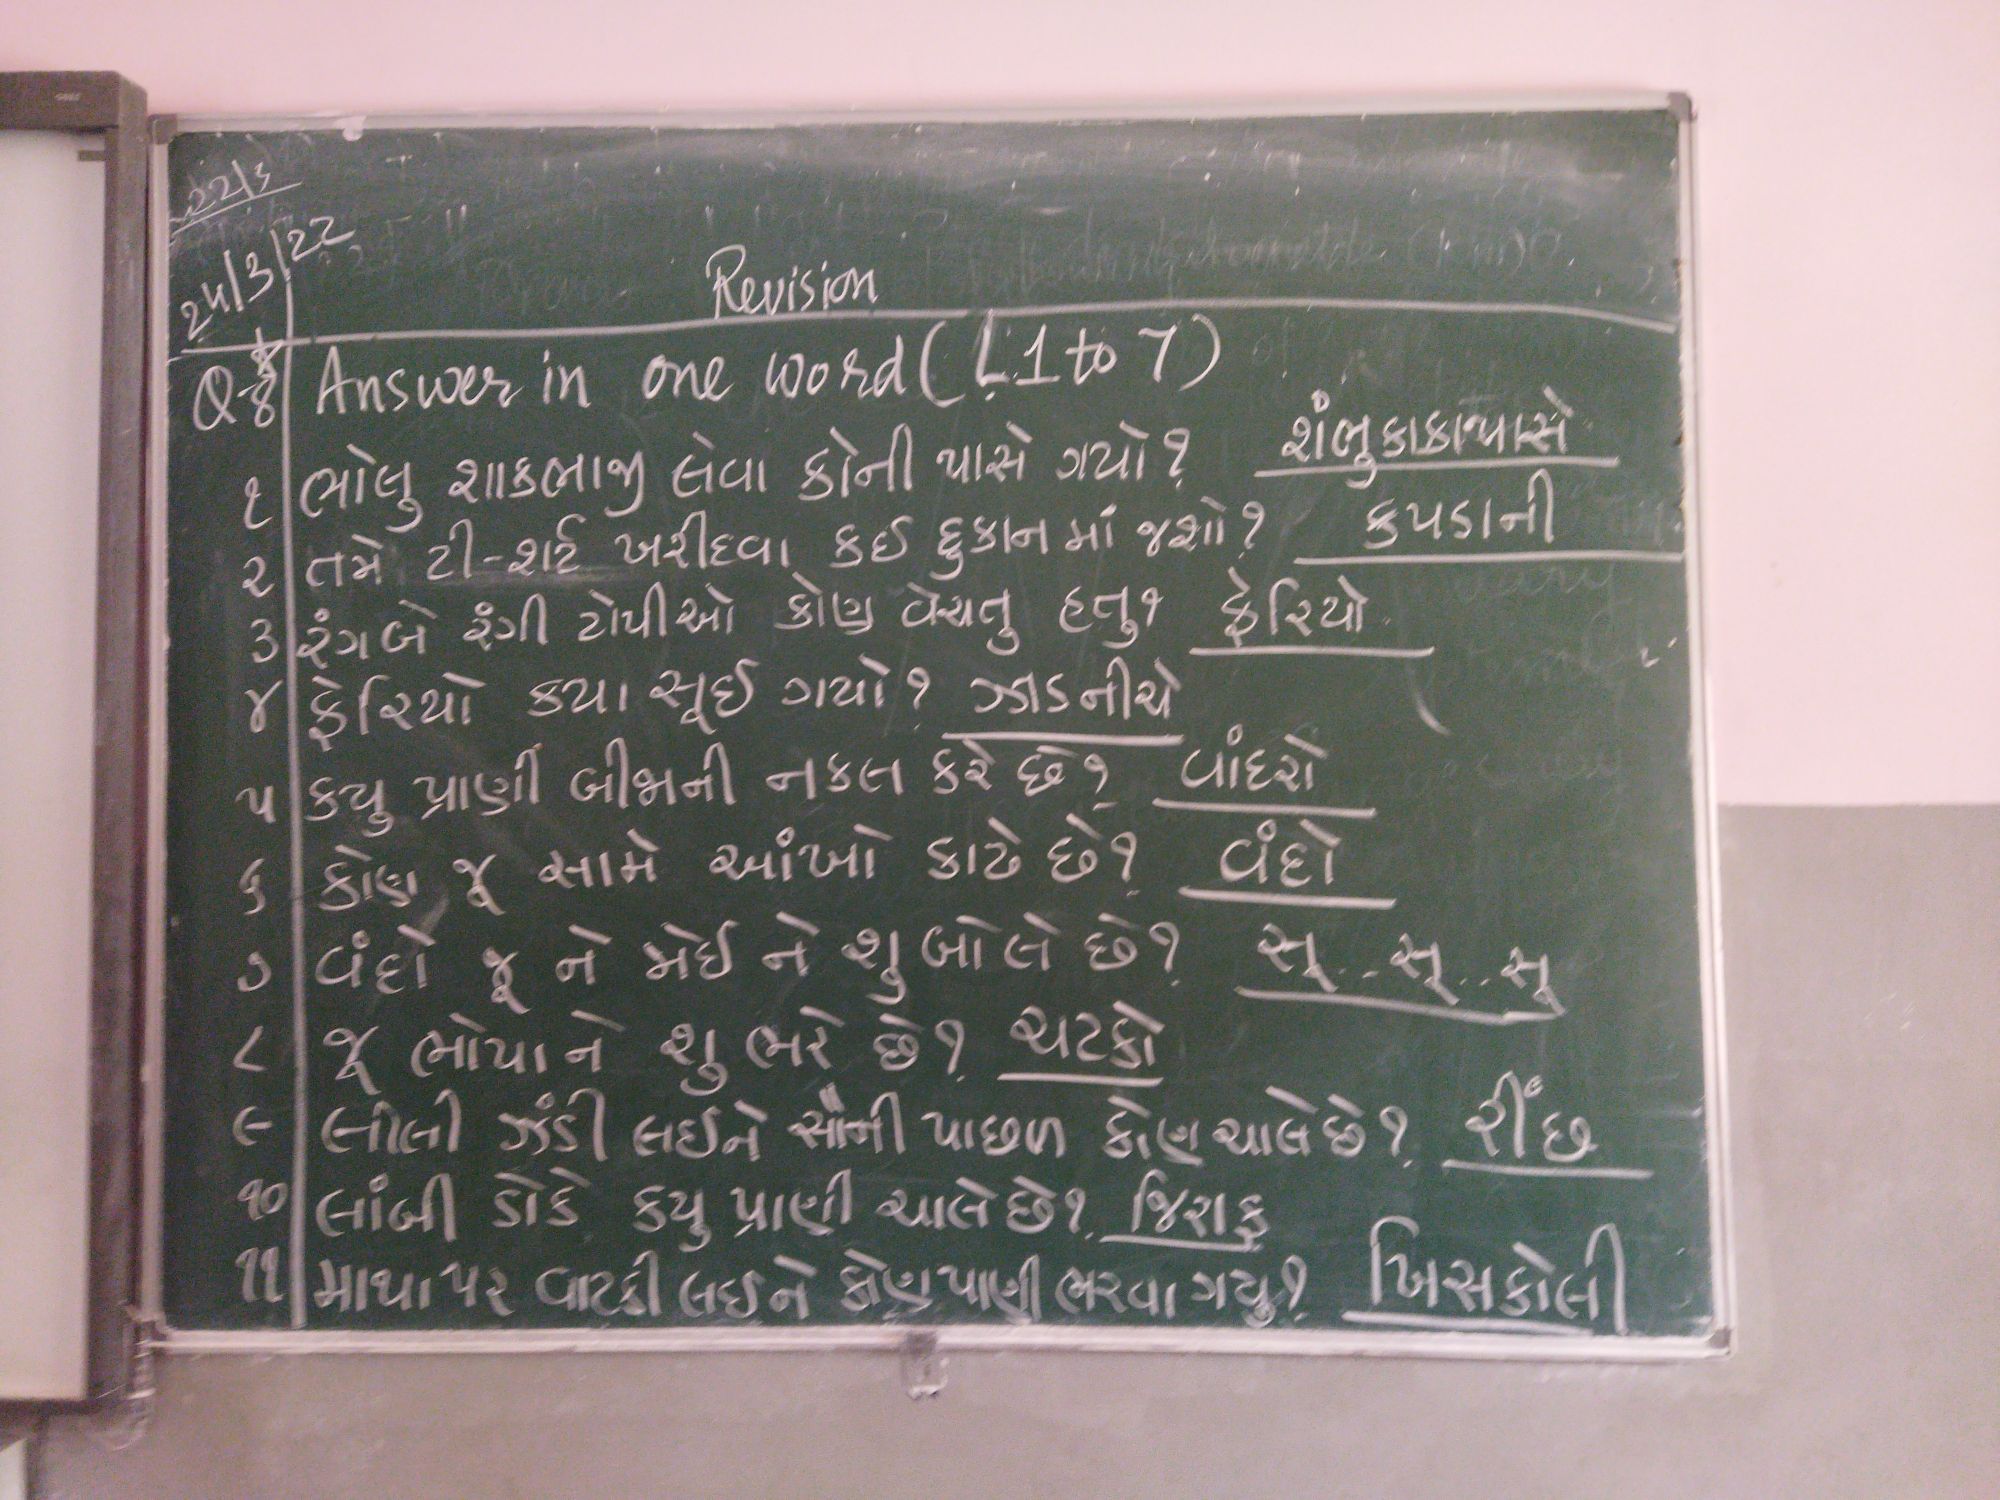 22/3
24/3/22
Revision
Q-8 Answer in one word (L.1 to 7)
૧ ભોલુ શાકભાજી લેવા કોની પાસે ગયો? શંભુકાકાપાસે
૨ તમે ટી-શર્ટ ખરીદવા કઈ દુકાન માં જશો? કપડાની
૩ રંગ બે રંગી ટોપીઓ કોણ વેચાતુ હતુ? ફેરિયો
૪ ફેરિયો કયા સૂઈ ગયો? ઝાડ નીચે
૫ કયુ પ્રાણી બીજાની નકલ કરે છે? વાંદરો
૬ કોણ જૂ સામે આંખો કાઢે છે? વંદો
૭ વંદો જૂ ને જોઈ ને શુ બોલે છે? સૂ..સૂ..સૂ
૮ જૂ ભોપાને શુ ભરે છે? ચટકો
૯ લીલી ઝંડી લઈને સૌની પાછળ કોણ ચાલે છે? રીંછ
૧૦ લાંબી ડોકે કયુ પ્રાણી ચાલે છે? જિરાફ
૧૧ માથા પર વાટકી લઈને કોણ પાણી ભરવા ગયુ? ખિસકોલી